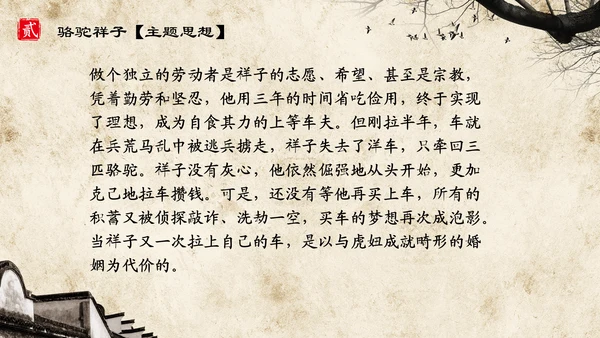 贰
骆驼祥子【主题思想】
做个独立的劳动者是祥子的志愿、希望、甚至是宗教，
凭着勤劳和坚忍，他用三年的时间省吃俭用，终于实现
了理想，成为自食其力的上等车夫。但刚拉半年，车就
在兵荒马乱中被逃兵掳走，祥子失去了洋车，只牵回三
匹骆驼。祥子没有灰心，他依然倔强地从头开始，更加
克己地拉车攒钱。可是，还没有等他再买上车，所有的
积蓄又被侦探敲诈、洗劫一空，买车的梦想再次成泡影。
当祥子又一次拉上自己的车，是以与虎妞成就畸形的婚
姻为代价的。